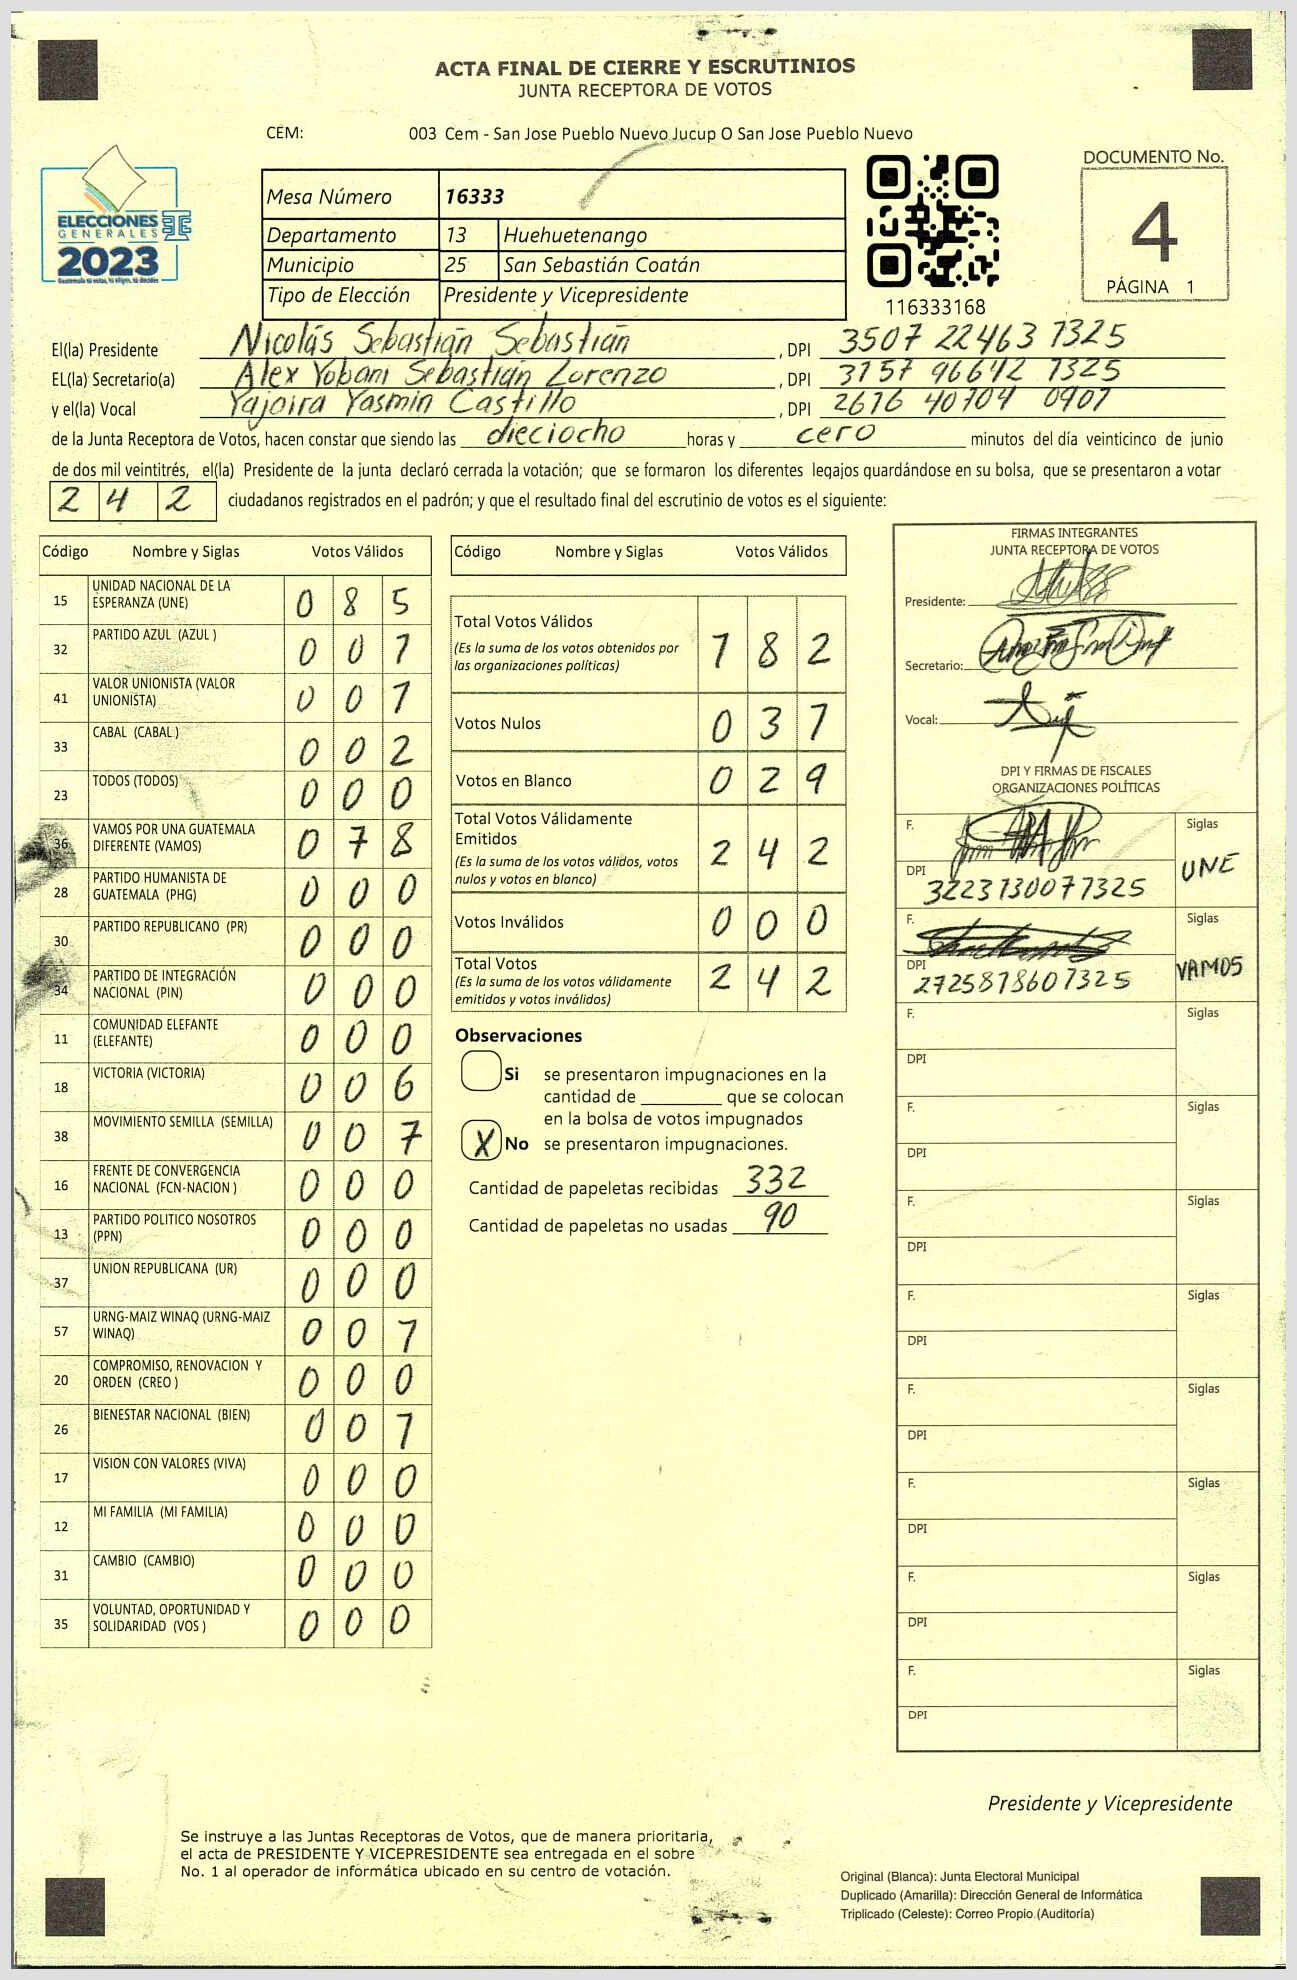 ACTA FINAL DE CIERRE Y ESCRUTINIOS
JUNTA RECEPTORA DE VOTOS
CEM: 003 Cem - San Jose Pueblo Nuevo Jucup O San Jose Pueblo Nuevo
DOCUMENTO No.
4
PÁGINA 1
ELECCIONES
GENERALES
2023
Guatemala tú votas, tú eliges, tú decides
Mesa Número 16333
Departamento 13 Huehuetenango
Municipio 25 San Sebastián Coatán
Tipo de Elección Presidente y Vicepresidente
116333168
El(la) Presidente Nicolás Sebastián Sebastián , DPI 3507 22463 1325
EL(la) Secretario(a) Alex Yobani Sebastian Lorenzo , DPI 3157 96642 1325
y el(la) Vocal Yajoira Yasmin Castillo , DPI 2616 40704 0901
de la Junta Receptora de Votos, hacen constar que siendo las dieciocho horas y cero minutos del día veinticinco de junio
de dos mil veintitrés, el(la) Presidente de la junta declaró cerrada la votación; que se formaron los diferentes legajos quardándose en su bolsa, que se presentaron a votar
2 4 2 ciudadanos registrados en el padrón; y que el resultado final del escrutinio de votos es el siguiente:
Código Nombre y Siglas Votos Válidos
15 UNIDAD NACIONAL DE LA
ESPERANZA (UNE) 0 8 5
32 PARTIDO AZUL (AZUL ) 0 0 1
41 VALOR UNIONISTA (VALOR
UNIONISTA) 0 0 1
33 CABAL (CABAL ) 0 0 2
23 TODOS (TODOS) 0 0 0
36 VAMOS POR UNA GUATEMALA
DIFERENTE (VAMOS) 0 7 8
28 PARTIDO HUMANISTA DE
GUATEMALA (PHG) 0 0 0
30 PARTIDO REPUBLICANO (PR) 0 0 0
34 PARTIDO DE INTEGRACIÓN
NACIONAL (PIN) 0 0 0
11 COMUNIDAD ELEFANTE
(ELEFANTE) 0 0 0
18 VICTORIA (VICTORIA) 0 0 6
38 MOVIMIENTO SEMILLA (SEMILLA) 0 0 7
16 FRENTE DE CONVERGENCIA
NACIONAL (FCN-NACION ) 0 0 0
13 PARTIDO POLITICO NOSOTROS
(PPN) 0 0 0
37 UNION REPUBLICANA (UR) 0 0 0
57 URNG-MAIZ WINAQ (URNG-MAIZ
WINAQ) 0 0 1
20 COMPROMISO, RENOVACION Y
ORDEN (CREO ) 0 0 0
26 BIENESTAR NACIONAL (BIEN) 0 0 1
17 VISION CON VALORES (VIVA) 0 0 0
12 MI FAMILIA (MI FAMILIA) 0 0 0
31 CAMBIO (CAMBIO) 0 0 0
35 VOLUNTAD, OPORTUNIDAD Y
SOLIDARIDAD (VOS ) 0 0 0
Código Nombre y Siglas Votos Válidos
Total Votos Válidos 1 8 2
(Es la suma de los votos obtenidos por
las organizaciones políticas)
Votos Nulos 0 3 1
Votos en Blanco 0 2 9
Total Votos Válidamente
Emitidos 2 4 2
(Es la suma de los votos válidos, votos
nulos y votos en blanco)
Votos Inválidos 0 0 0
Total Votos 2 4 2
(Es la suma de los votos válidamente
emitidos y votos inválidos)
Observaciones
Si se presentaron impugnaciones en la
cantidad de ________ que se colocan
en la bolsa de votos impugnados
X No se presentaron impugnaciones.
Cantidad de papeletas recibidas 332
Cantidad de papeletas no usadas 90
FIRMAS INTEGRANTES
JUNTA RECEPTORA DE VOTOS
Presidente:
Secretario:
Vocal:
DPI Y FIRMAS DE FISCALES
ORGANIZACIONES POLÍTICAS
F. Siglas
UNE
DPI 3223130071325
F. Siglas
VAMOS
DPI 2725818601325
F. Siglas
DPI
F. Siglas
DPI
F. Siglas
DPI
F. Siglas
DPI
F. Siglas
DPI
F. Siglas
DPI
F. Siglas
DPI
F. Siglas
DPI
Presidente y Vicepresidente
Se instruye a las Juntas Receptoras de Votos, que de manera prioritaria,
el acta de PRESIDENTE Y VICEPRESIDENTE sea entregada en el sobre
No. 1 al operador de informática ubicado en su centro de votación.
Original (Blanca): Junta Electoral Municipal
Duplicado (Amarilla): Dirección General de Informática
Triplicado (Celeste): Correo Propio (Auditoría)